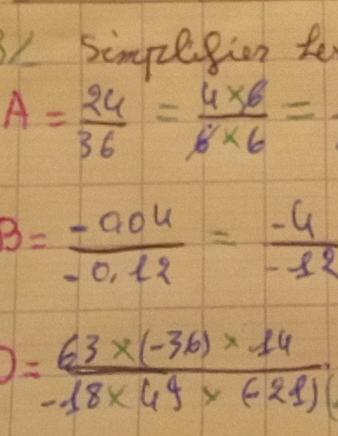 3/ Simplifier
A = 24/36 = 4×6/6×6 =
B = -0,04/-0,12 = -4/-12
D = 63×(-36)×14/-18×49×(-21)(